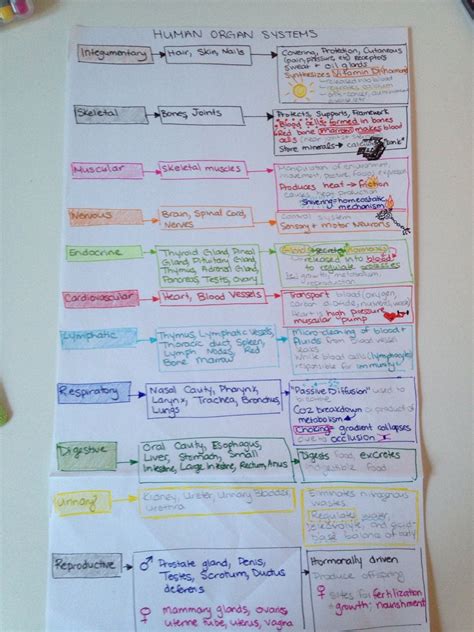 HUMAN ORGAN SYSTEMS
Integumentary
Hair, Skin, Nails
Covering, Protection, Cutaneous
(pain, pressure, etc) receptors
Sweat + oil glands
Synthesizes Vitamin D
Skeletal
Bones, Joints
Protects, Supports, Framework
Blood cells formed in bones
Red bone marrow makes blood
cells
Store minerals
Muscular
Skeletal muscles
Manipulation of environment,
movement, posture, facial
Produces heat → friction
Shivering = homeostatic
mechanism
Nervous
Brain, Spinal Cord,
Nerves
Control system
Sensory + Motor Neurons
Endocrine
Thyroid Gland, Pineal
Gland, Pituitary Gland,
Thymus, Adrenal Gland,
Pancreas, Testes, Ovary
released into blood
to regulate processes
Cardiovascular
Heart, Blood Vessels
Transport blood (oxygen,
Heart is high pressure
muscular pump
Lymphatic
Thymus, Lymphatic Vessels,
Thoracic duct, Spleen,
Lymph Nodes, Red
Bone Marrow
Micro cleaning of blood +
fluids from Blood vessel
White blood cells (lymphocytes)
responsible for immunity
Respiratory
Nasal Cavity, Pharynx,
Larynx, Trachea, Bronchus,
Lungs
"Passive Diffusion" used to
CO2 breakdown product of
metabolism
Choking = gradient collapses
occlusion
Digestive
Oral Cavity, Esophagus,
Liver, Stomach, Small
Intestine, Large Intestine, Rectum, Anus
Digests food, excretes
indigestible food
Urinary
Kidney, Ureter, Urinary Bladder,
Urethra
Eliminates nitrogenous
wastes
Regulate water,
electrolyte, and acid-
base balance of body
Reproductive
♂ Prostate gland, Penis,
Testes, Scrotum, Ductus
deferens
♀ Mammary glands, ovaries,
uterine tube, uterus, vagina
Hormonally driven
Produce offspring
♀ Sites for fertilization
+ growth: nourishment